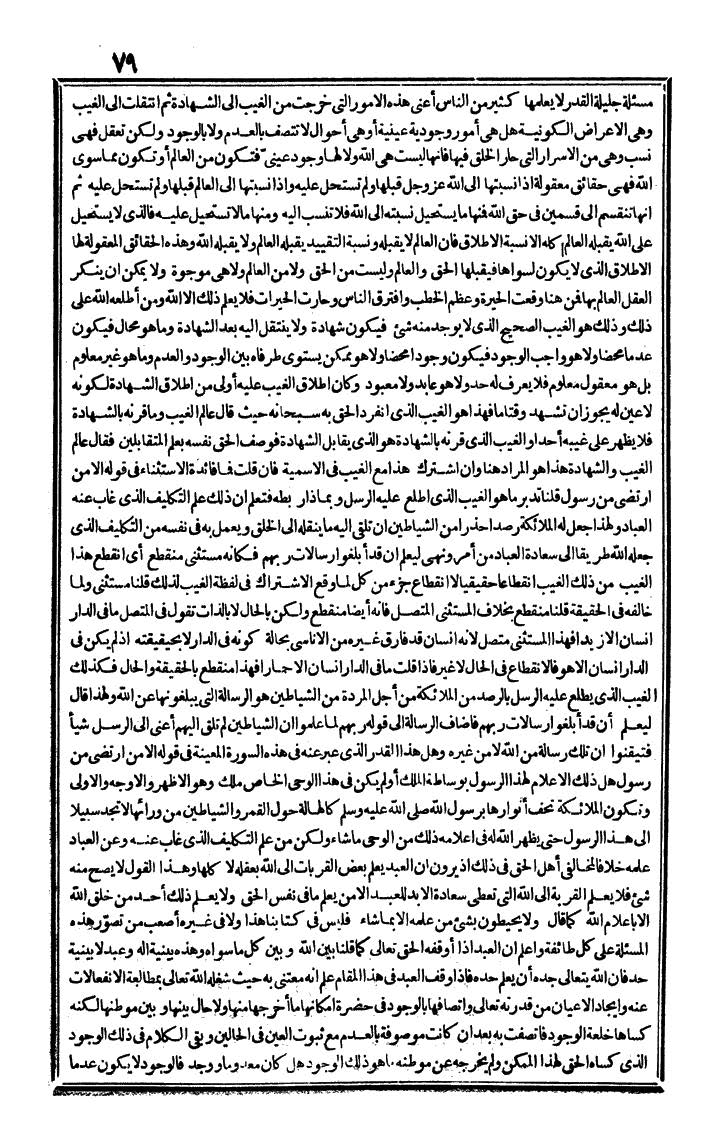 ٧٩
مسئلة جليلة القدر لا يعلمها كثير من الناس أعنى هذه الامور التى خرجت من الغيب الى الشهادة ثم انتقلت الى الغيب
وهى الاعراض الكونية هل هى أمور وجودية عينية أو هى أحوال لا تتصف بالعدم ولا بالوجود ولكن تعقل فهى
نسب وهى من الاسرار التى حار الخلق فيها فانها ليست هى الله ولا لها وجود عينى فتكون من العالم أو تكون مما سوى
الله فهى حقائق معقولة اذا نسبتها الى الله عز وجل قبلها ولم تستحل عليه واذا نسبتها الى العالم قبلها ولم تستحل عليه ثم
انها تنقسم الى قسمين فى حق الله فمنها ما يستحيل نسبته الى الله فلا تنسب اليه ومنها ما لا تستحيل عليه فالذى لا يستحيل
على الله يقبله العالم كله الا نسبة الاطلاق فان العالم لا يقبله ونسبة التقييد يقبله العالم ولا يقبله الله وهذه الحقائق المعقولة لها
الاطلاق الذى لا يكون لسواها فيقبلها الحق والعالم وليست من الحق ولا من العالم ولا هى موجودة ولا يمكن ان ينكر
العقل العالم بها فمن هنا وقعت الحيرة وعظم الخطب وافترق الناس وحارت الحيرات فلا يعلم ذلك الا الله ومن أطلعه الله على
ذلك وذلك هو الغيب الصحيح الذى لا يوجد منه شئ فيكون شهادة ولا ينتقل اليه بعد الشهادة وما هو محال فيكون
عدما محضا ولا هو واجب الوجود فيكون وجودا محضا ولا هو ممكن يستوى طرفاه بين الوجود والعدم وما هو غير معلوم
بل هو معقول معلوم فلا يعرف له حد ولا هو عابد ولا معبود وكان اطلاق الغيب عليه أولى من اطلاق الشهادة لكونه
لا عين له يجوز ان تشهد وقتا ما فهذا هو الغيب الذى انفرد الحق به سبحانه حيث قال عالم الغيب وما قرنه بالشهادة
فلا يظهر على غيبه أحدا والغيب الذى قرنه بالشهادة هو الذى يقابل الشهادة فوصف الحق نفسه بعلم المتقابلين فقال عالم
الغيب والشهادة هذا هو المراد هنا وان اشترك هذا مع الغيب فى الاسمية فان قلت فما فائدة الاستثناء فى قوله الا من
ارتضى من رسول قلنا تدبر ما هو الغيب الذى اطلع عليه الرسل وبماذا ربطه فتعلم ان ذلك علم التكليف الذى غاب عنه
العباد ولهذا جعل له الملائكة رصدا حذرا من الشياطين ان تلقى اليه ما ينقله الى الخلق ويعمل به فى نفسه من التكليف الذى
جعله الله طريقا الى سعادة العباد من أمر ونهى ليعلم ان قد أبلغوا رسالات ربهم فكانه مستثنى منقطع أى انقطع هذا
الغيب من ذلك الغيب انقطاعا حقيقيا لا انقطاع جزء من كل لما وقع الاشتراك فى لفظة الغيب لذلك قلنا مستثنى ولما
خالفه فى الحقيقة قلنا منقطع بخلاف المستثنى المتصل فانه أيضا منقطع ولكن بالحال لا بالذات تقول فى المتصل ما فى الدار
انسان الا زيد افهذا المستثنى متصل لانه انسان قد فارق غيره من الاناسى بحالة كونه فى الدار لا بحقيقته اذ لم يكن فى
الدار انسان الا هو فالانقطاع فى الحال لا غير فاذا قلت ما فى الدار انسان الا حمارا فهذا منقطع بالحقيقة والحال فكذلك
الغيب الذى يطلع عليه الرسل بالرصد من الملائكة من أجل المردة من الشياطين هو الرسالة التى يبلغونها عن الله ولهذا قال
ليعلم أن قد أبلغوا رسالات ربهم فاضاف الرسالة الى قوله ربهم لما علموا ان الشياطين لم تلق اليهم أعنى الى الرسل شيأ
فتيقنوا ان تلك رسالة من الله لا من غيره وهل هذا القدر الذى عبر عنه فى هذه السورة المعينة فى قوله الا من ارتضى من
رسول هل ذلك الاعلام لهذا الرسول بوساطة الملك أو لم يكن فى هذا الوحى الخاص ملك وهو الاظهر والاوجه والاولى
وتكون الملائكة تحف أنوارها برسول الله صلى الله عليه وسلم كالهالة حول القمر والشياطين من ورائها لا تجد سبيلا
الى هذا الرسول حتى يظهر الله له فى اعلامه ذلك من الوحى ما شاء ولكن من علم التكليف الذى غاب عنه وعن العباد
علمه خلافا لمخالفى أهل الحق فى ذلك اذ يرون ان العبد يعلم بعض القربات الى الله بعقله لا كلها وهذا القول لا يصح منه
شئ فلا يعلم القربة الى الله التى تعطى سعادة الابد للعبد الا من يعلم ما فى نفس الحق ولا يعلم ذلك أحد من خلق الله
الا باعلام الله كما قال ولا يحيطون بشئ من علمه الا بما شاء فليس فى كتابنا هذا ولا فى غيره أصعب من تصوّر هذه
المسئلة على كل طائفة واعلم ان العبد اذا أوقفه الحق تعالى كما قلنا بين الله وبين كل ما سواه وهذه بينية اله وعبد لا بينية
حد فان الله يتعالى جده أن يعلم حده فاذا وقف العبد فى هذا المقام علم انه معتنى به حيث شغله الله تعالى بمطالعة الانفعالات
عنه وايجاد الاعيان من قدرته تعالى واتصافها بالوجود فى حضرة امكانها ما أخرجها منها ولا حال بينها وبين موطنها لكنه
كساها خلعة الوجود فاتصفت به بعد ان كانت موصوفة بالعدم مع ثبوت العين فى الحالين وبقى الكلام فى ذلك الوجود
الذى كساه الحق لهذا الممكن ولم يخرجه عن موطنه ما هو ذلك الوجود هل كان معدوما ووجد فالوجود لا يكون عدما